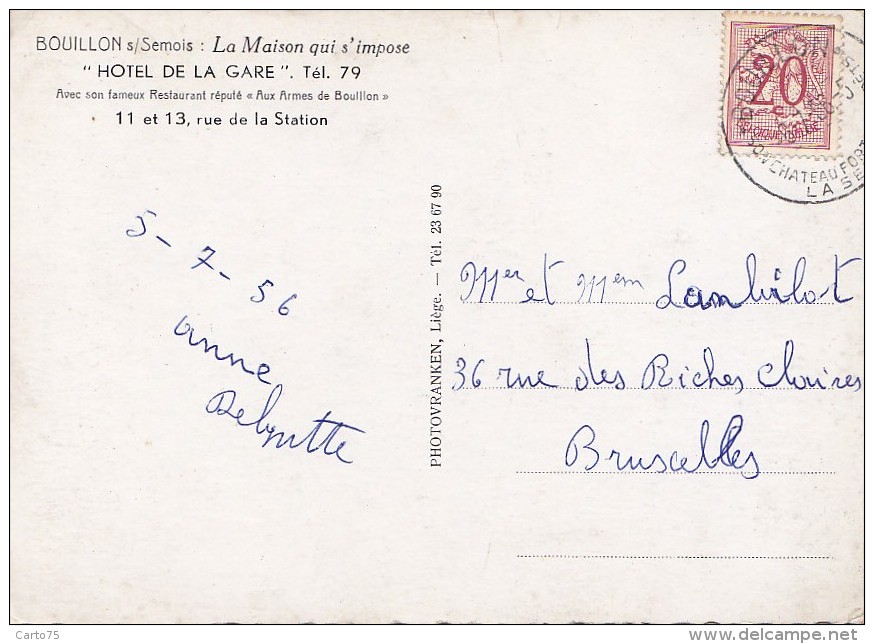 BOUILLON s/Semois : La Maison qui s'impose
" HOTEL DE LA GARE ". Tél. 79
Avec son fameux Restaurant réputé « Aux Armes de Bouillon »
11 et 13, rue de la Station
20
CHATEAU FORT
LA SE
5-7-56
anne
PHOTOVRANKEN, Liège. — Tél. 23 67 90
Mer et Mem Lambilot
36 rue des Riches Claires
Bruscelles
Carto75
delcampe.net